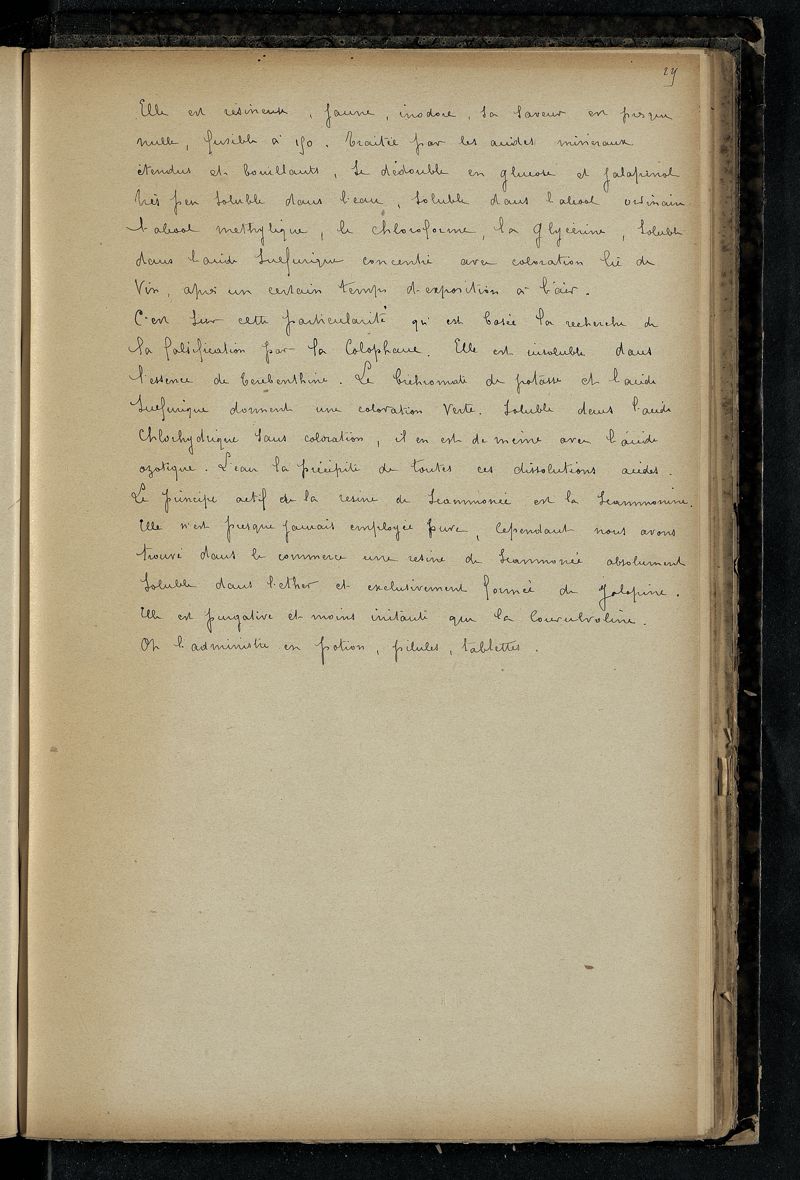 29
Elle est résineuse, jaune, inodore, sa saveur est presque
nulle, fusible à 150. Traitée par les acides minéraux
étendus et bouillants, se dédouble en glucose et jalapinol
très peu soluble dans l'eau, soluble dans l'alcool ordinaire
l'alcool methylique, le chloroforme, la glycerine, soluble
dans l'acide sulfurique concentré avec coloration lie de
vin, après un certain temps d'exposition à l'air.
C'est sur cette particularité qu'est basée la recherche de
la falsification par la colophane. Elle est insoluble dans
l'essence de terebenthine. Le bichromate de potasse et l'acide
sulfurique donnent une coloration verte. Soluble dans l'acide
chlorhydrique sans coloration, il en est de même avec l'acide
azotique. L'eau la précipite de toutes ces dissolutions acides.
Le principe actif de la resine de Scammonée est la Scammonine.
Elle n'est presque jamais employée pure, cependant nous avons
trouvé dans le commerce une resine de Scammonée absolument
soluble dans l'ether et exclusivement formée de Jalapine.
Elle est purgative et moins irritante que la
On l'administre en potion, pilules, tablettes.